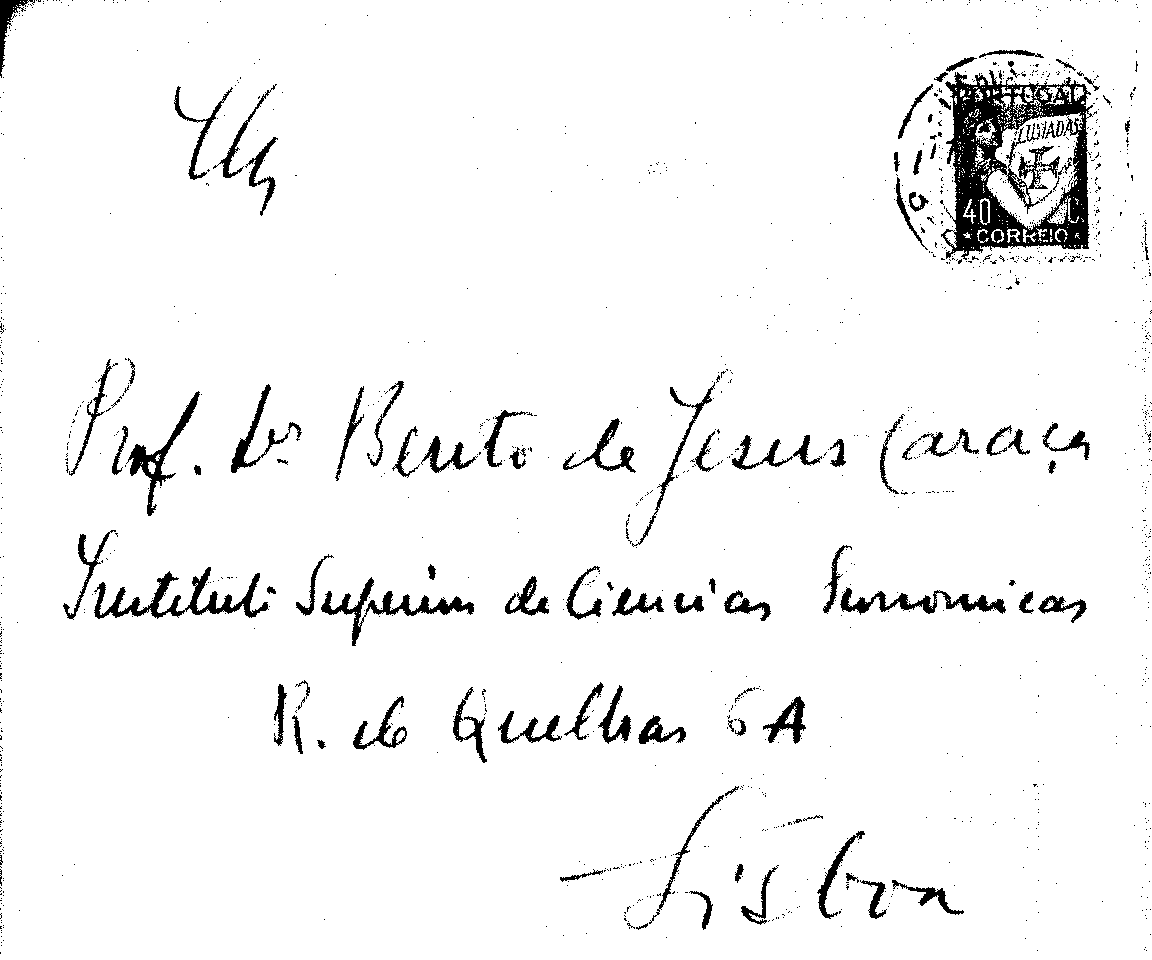 PORTUGAL
LUSIADAS
40 C.
CORREIO
Prof. Dr. Bento de Jesus Caraça
Instituto Superior de Ciencias Economicas
R. do Quelhas 6A
Lisboa